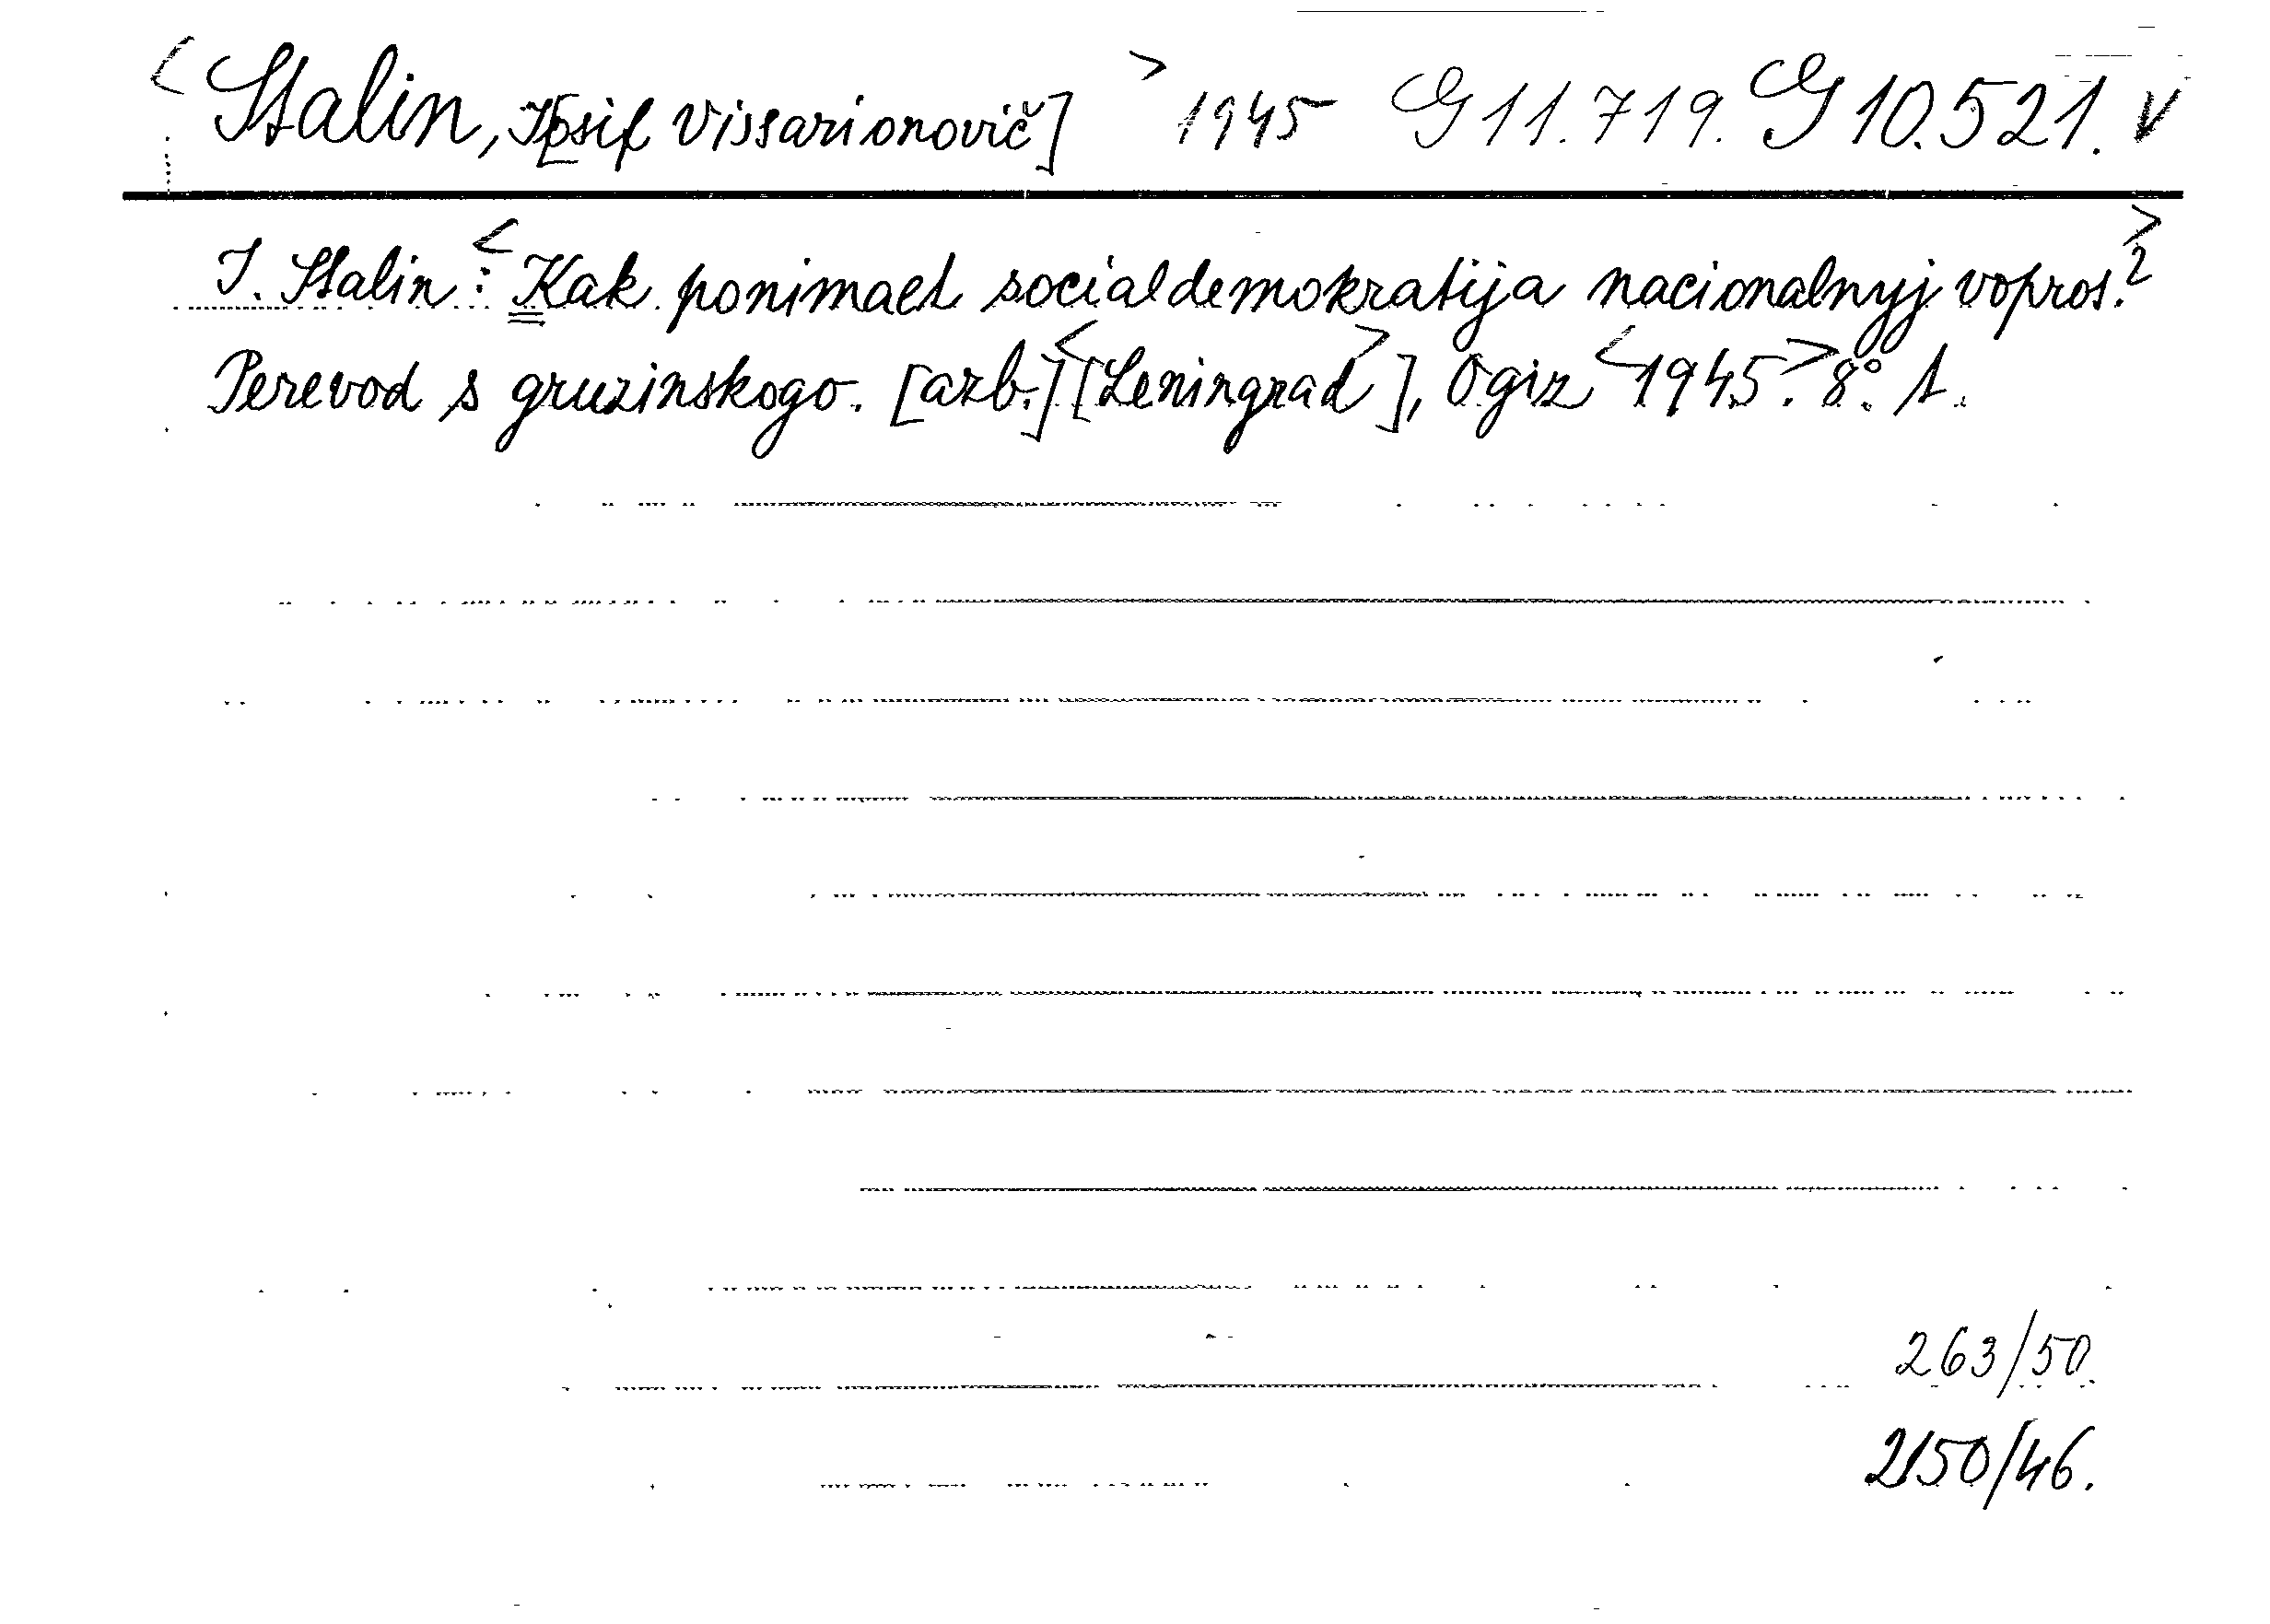 <Stalin, I[osif Vissarionovič]> 1945 G 11.719. G 10.521. V
I. Stalin: <Kak ponimaet socialdemokratija nacionalnyj vopros.?>
Perevod s gruzinskogo. [azb.] <[Leningrad>], Ogiz <1945.> 8° 1.
263/50.
2150/46.